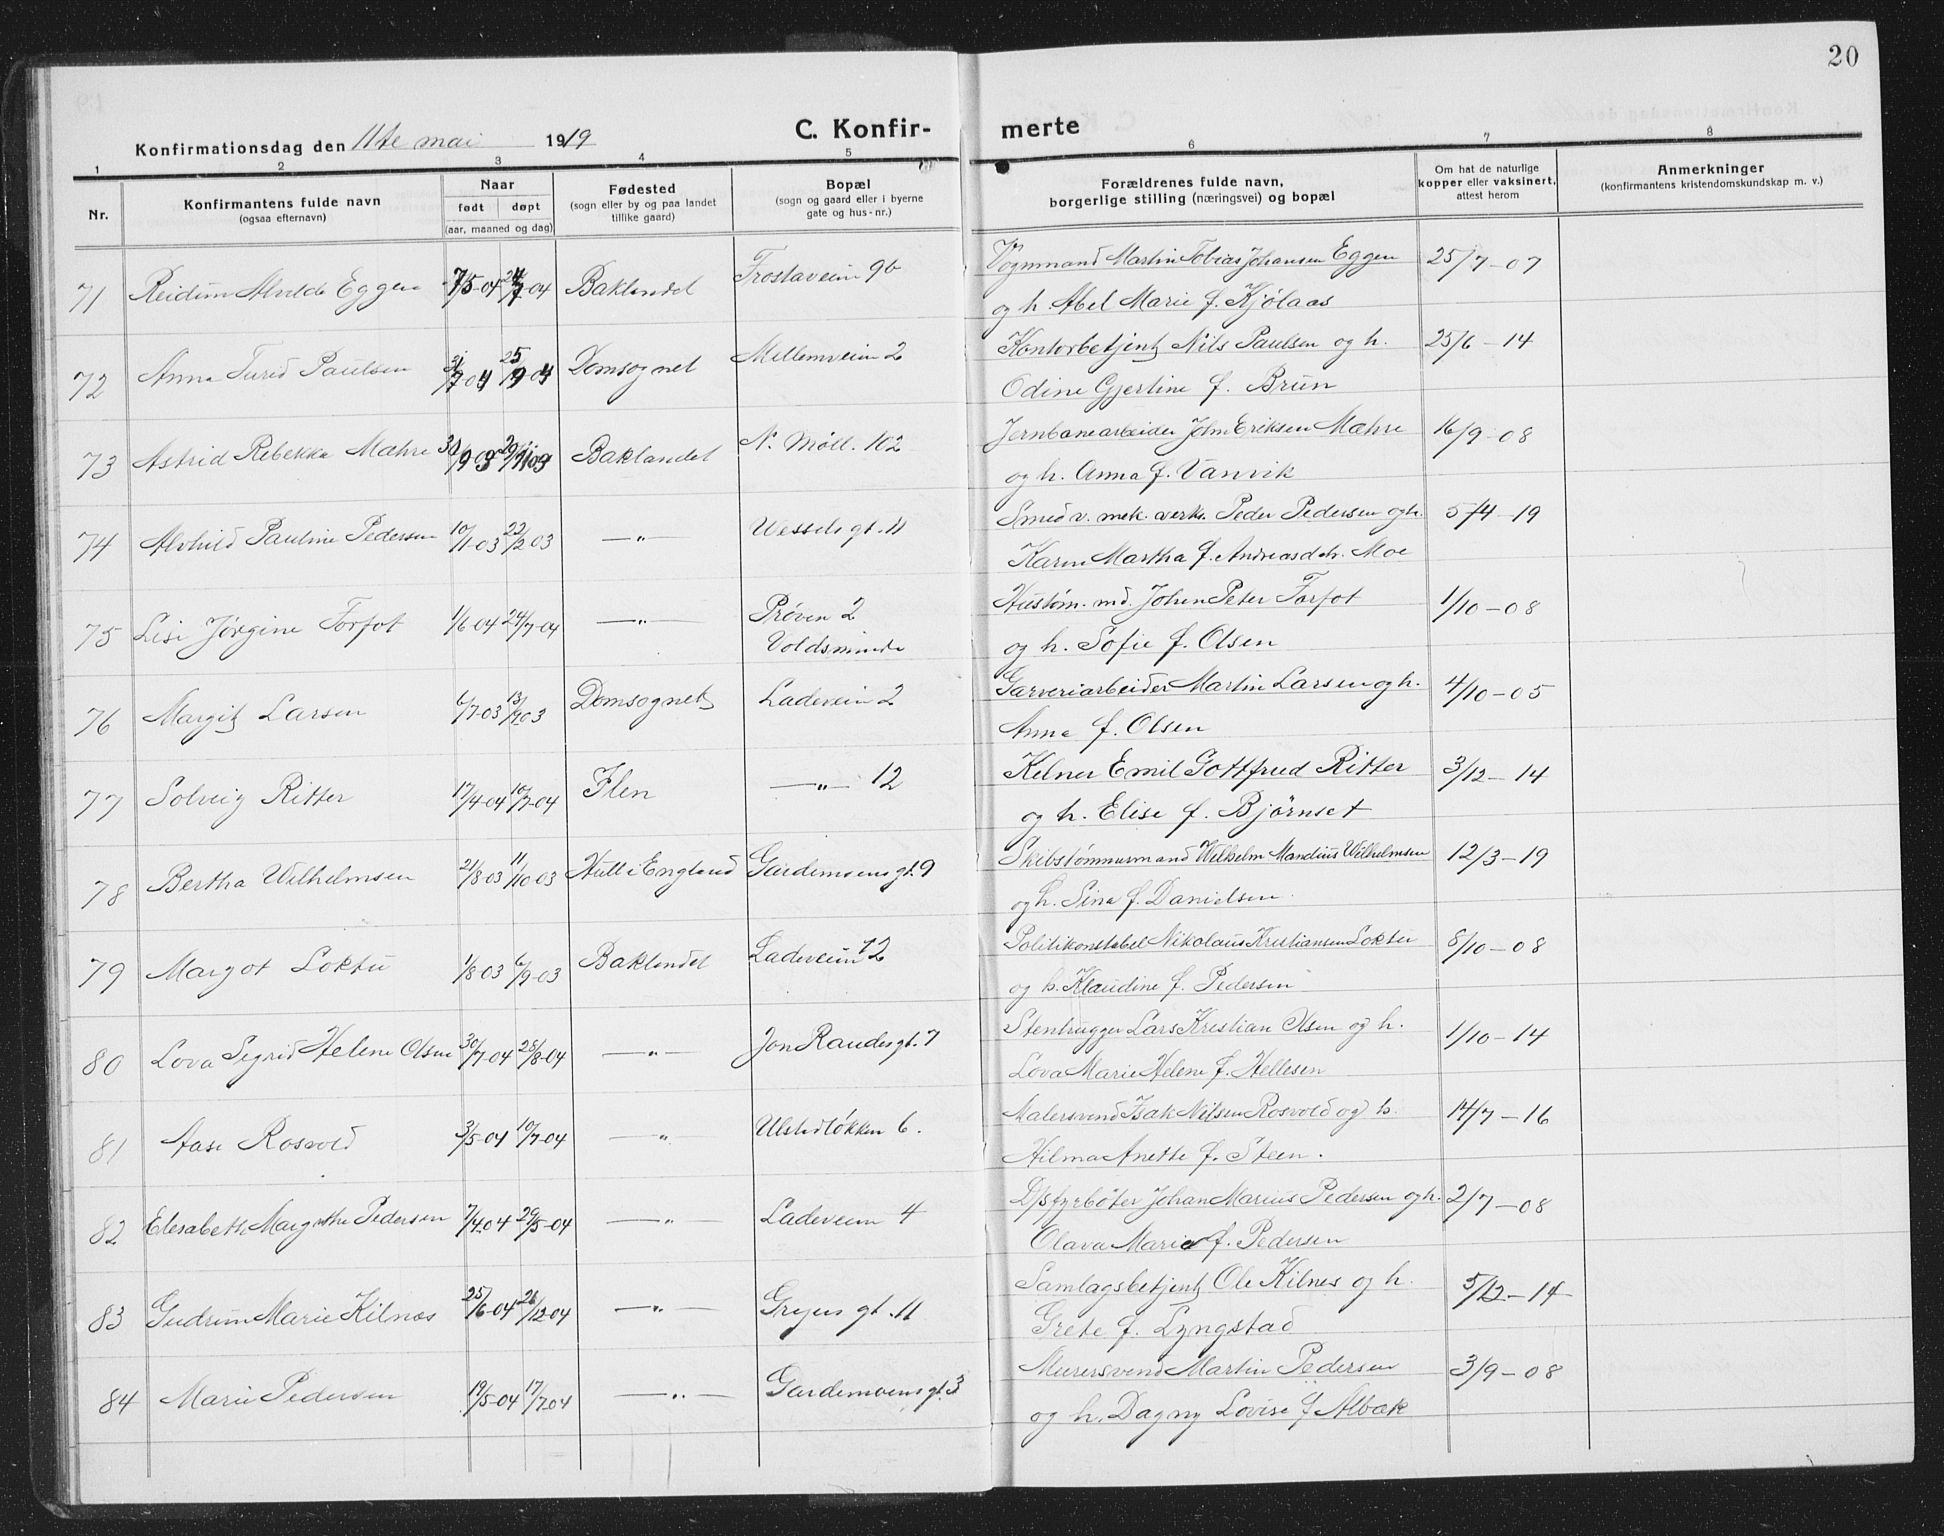 20
Konfirmationsdag den 11te mai 1919
C. Konfir- merte
1 2 3 4 5 6 7 8
Nr.
Konfirmantens fulde navn
(ogsaa efternavn)
Naar
født døpt
(aar, maaned og dag)
Fødested
(sogn eller by og paa landet
tillike gaard)
Bopæl
(sogn og gaard eller i byerne
gate og hus-nr.)
Forældrenes fulde navn,
borgerlige stilling (næringsvei) og bopæl
Om hat de naturlige
kopper eller vaksinert,
attest herom
Anmerkninger
(konfirmantens kristendomskundskap m. v.)
71 Reidun Alvilde Eggen 7/5-04 24/7-04 Baklandet Frostaveien 9b Vognmand Martin Tobias Johansen Eggen 25/7-07
og h. Abel Marie f. Kjølaas
72 Anna Turid Paulsen /7-04 25/9 04 Domsognet Mellemveien 2 Kontorbetjent Nils Paulsen og h. 25/6-14
Odine Gjertine f. Brun
73 Astrid Rebekka Mæhre 30/9 03 29/11 03 Baklandet N. Møll. 102 Jernbanearbeider John Eriksen Mæhre 16/9-08
og h. Anna f. Vanvik
74 Alvhild Pauline Pedersen 10/1-03 22/2 03 —"— Wessels gt. 11 Smed v. mek. verks. Peder Pedersen og h. 5/4-19
Karen Martha f. Andreasdtr. Moe
75 Lisi Jørgine Forfot 1/6-04 24/7-04 —"— Prøven 2 Hustøm. md. Johan Peter Forfot 1/10-08
Voldsminde og h. Sofie f. Olsen
76 Margit Larsen 6/7-03 13/ 03 Domsognet Ladeveien 2 Garveriarbeider Martin Larsen og h. 4/10-05
Anna f. Olsen
77 Solveig Ritter 17/4-04 10/7-04 Ilen —"— 12 Kelner Emil Gottfried Ritter 3/12-14
og h. Elise f. Bjørnset
78 Bertha Wilhelmsen 21/8-03 11/10-03 Hull i England Gardemoens gt. 9 Skibstømmermand Wilhelm Mandius Wilhelmsen 12/3-19
og h. Sina f. Danielsen
79 Margot Loktu 1/8-03 6/9-03 Baklandet Ladeveien 12 Politikonstabel Nikolaus Kristiansen Loktu 8/10-08
og h. Klaudine f. Pedersen
80 Lova Sigrid Helene Olsen 30/7-04 28/8-04 —"— Jon Raudes gt. 7 Stenhugger Lars Kristian Olsen og h. 1/10-14
Lova Marie Helene f. Hellesen
81 Aase Rosvold 31/5-04 10/7-04 —"— Ulstadløkken 6. Malersvend Isak Nilsen Rosvold og h. 14/7-16
Hilma Anette f. Steen.
82 Elisabeth Margrethe Pedersen 7/4 04 29/5-04 —"— Ladeveien 4 D/sfyrbøter Johan Marius Pedersen og h. 2/7-08
Olava Marie f. Pedersen
83 Gudrun Marie Kilnæs 25/6-04 26/12-04 —"— Gryus gt. 11 Samlagsbetjent Ole Kilnes og h. 5/12-14
Grete f. Lyngstad
84 Marie Pedersen 19/5-04 17/7 04 —"— Gardemoens gt. 3 Murersvend Martin Pedersen 3/9-08
og h. Dagny Lovise f. Albæk